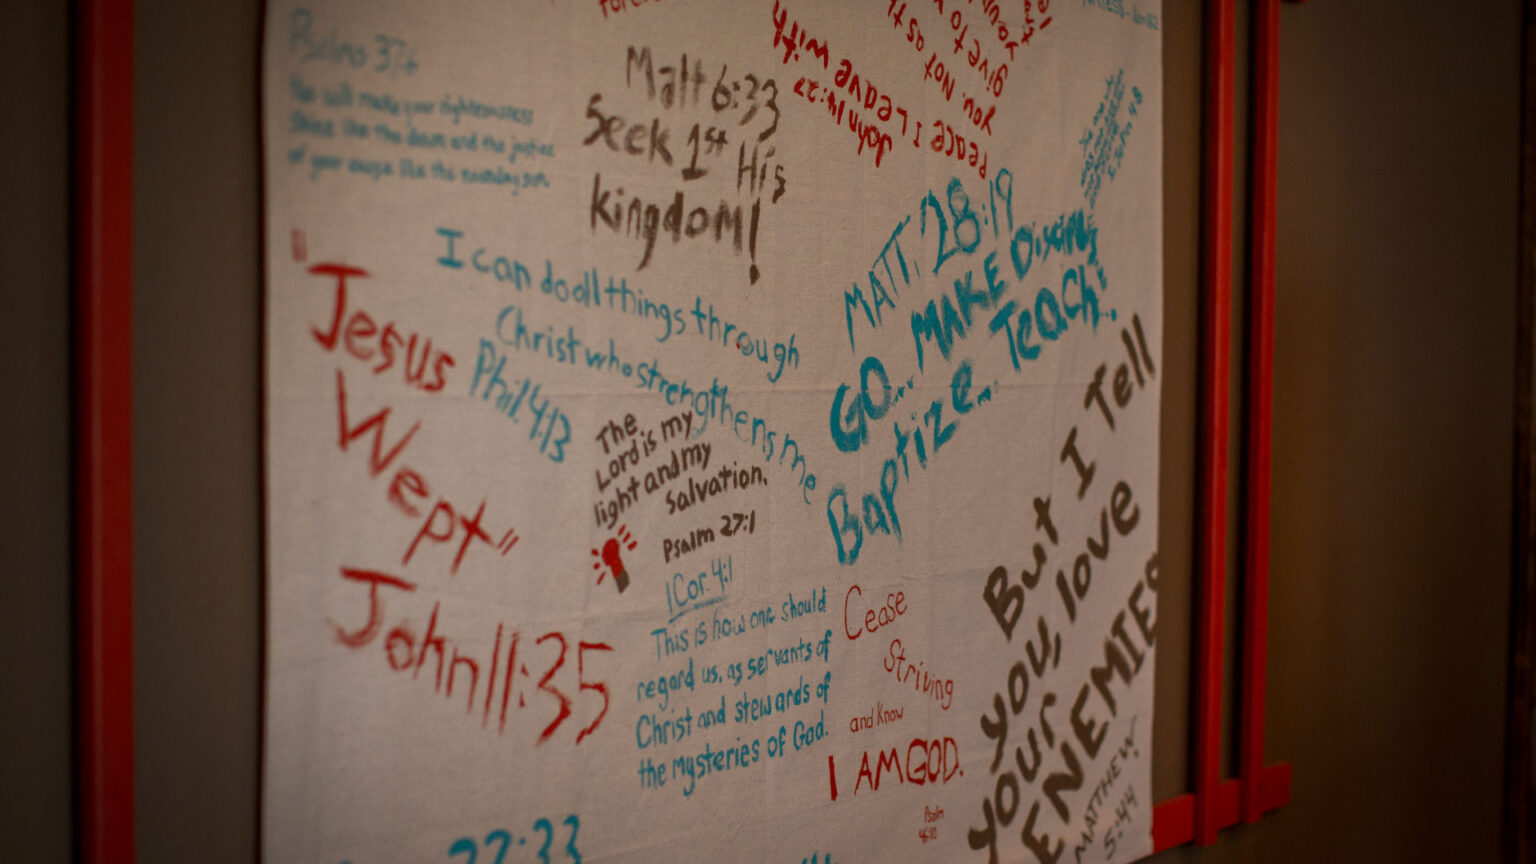 Psalms 37:6
He will make your righteousness
Shine like the dawn and the justice
of your cause like the noonday sun.
Matt 6:33
Seek 1st His
kingdom!
John 14:27
Peace I Leave with
you. Not as th
give to y
you
MATT. 28:19
GO... MAKE Disciples
Baptize... Teach!
I can do all things through
Christ who strengthens me
Phil 4:13
"Jesus
Wept"
John 11:35
The
Lord is my
light and my
Salvation.
Psalm 27:1
1 Cor. 4:1
This is how one should
regard us, as servants of
Christ and stewards of
the mysteries of God.
Cease
Striving
and Know
I AM GOD.
Psalm
46:10
But I Tell
you, love
your
ENEMIES
MATTHEW
5:44
22:33